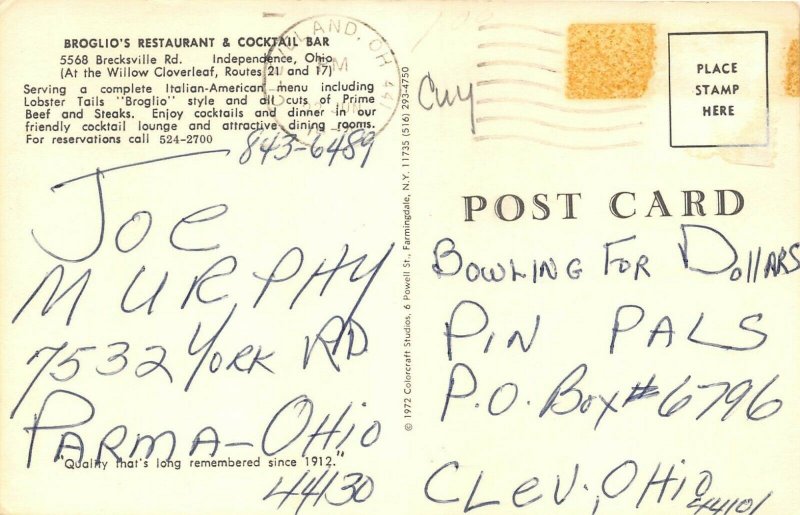 BROGLIO'S RESTAURANT & COCKTAIL BAR
5568 Brecksville Rd. Independence, Ohio
(At the Willow Cloverleaf, Routes 21 and 17)
Serving a complete Italian-American menu including
Lobster Tails "Broglio" style and all cuts of Prime
Beef and Steaks. Enjoy cocktails and dinner in our
friendly cocktail lounge and attractive dining rooms.
For reservations call 524-2700
843-6489
JOE
MURPHY
7532 YORK RD
PARMA-OHIO
"Quality that's long remembered since 1912."
44130
© 1972 Colorcraft Studios, 6 Powell St., Farmingdale, N.Y. 11735 (516) 293-4750
OH 441
PM
Cuy
PLACE
STAMP
HERE
POST CARD
BOWLING FOR DOllARS
PIN PALS
P.O. Box # 6796
CLEV., OHIO
44101